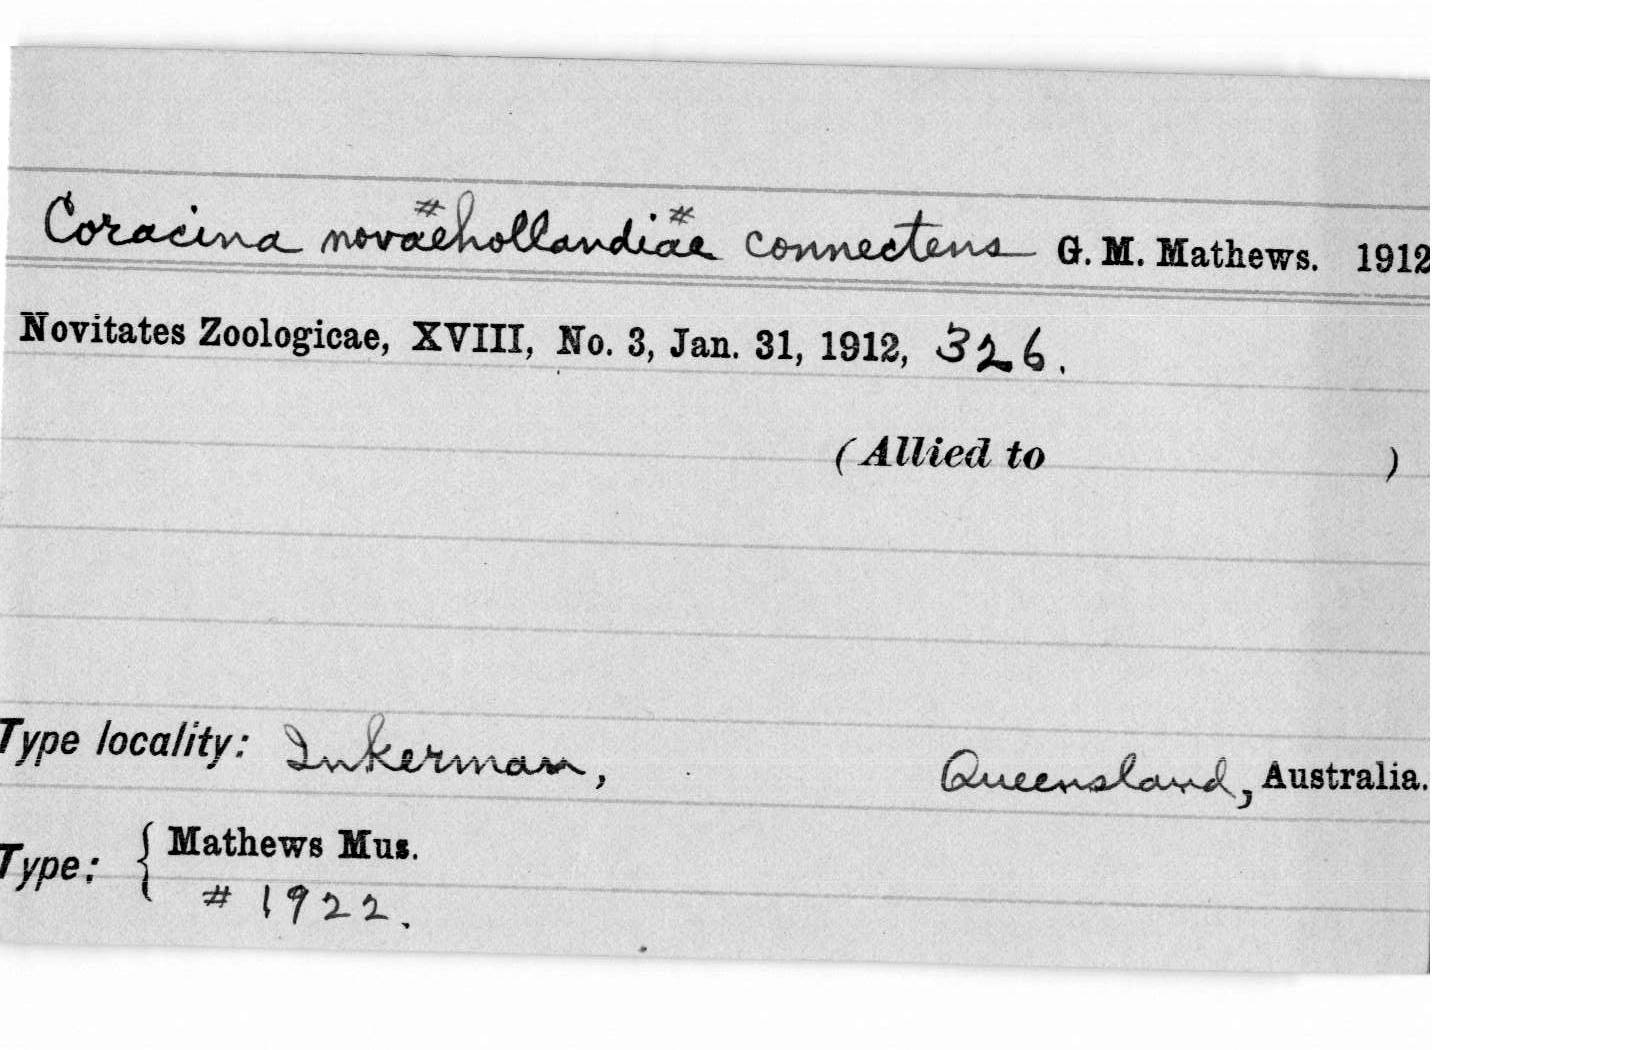 # #
Coracina novaehollandiae connectens G. M. Mathews. 1912
Novitates Zoologicae, XVIII, No. 3, Jan. 31, 1912, 326.
(Allied to )
Type locality: Inkerman, Queensland, Australia.
Type: { Mathews Mus.
# 1922.